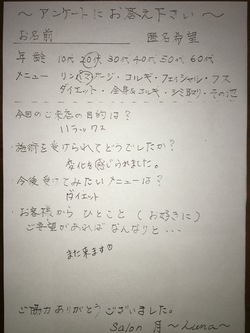 ～アンケートにお答え下さい～
お名前　　　匿名希望
年齢　10代　20代　30代　40代　50代　60代
メニュー　リンパマッサージ・コルギ・フェイシャル・フス
ダイエット・全身＆コルギ・シミ取り・その他
・今回のご来店の目的は？
リラックス
・施術を受けられてどうでしたか？
変化を感じられました。
・今後受けてみたいメニューは？
ダイエット
・お客様からひとこと（お好きに）
ご希望があればなんなりと・・・
また来ます
ご協力ありがとうございました。
Salon 月～Luna～